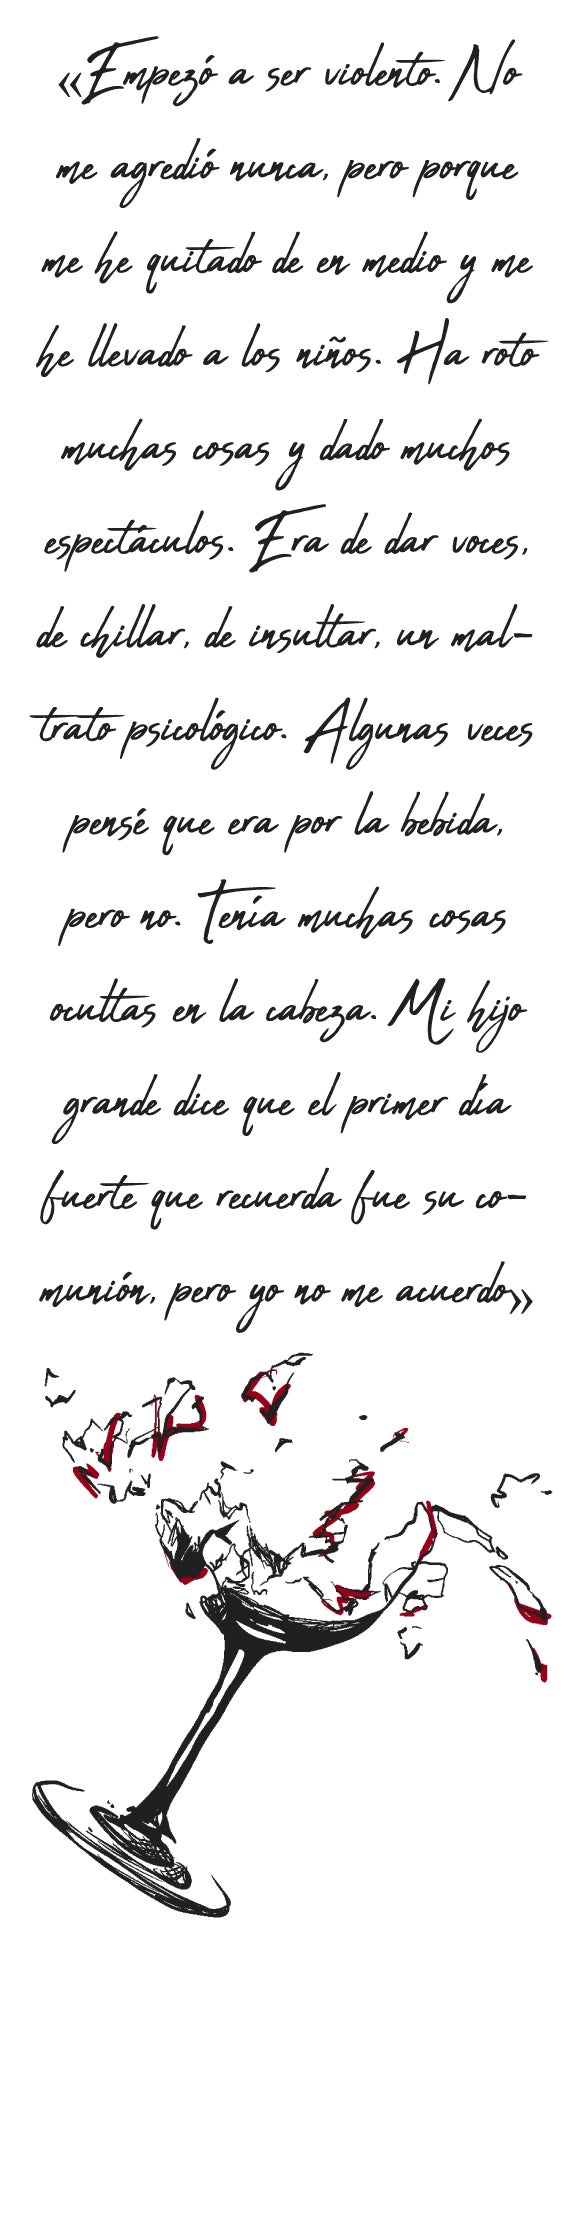 «Empezó a ser violento. No
me agredió nunca, pero porque
me he quitado de en medio y me
he llevado a los niños. Ha roto
muchas cosas y dado muchos
espectáculos. Era de dar voces,
de chillar, de insultar, un mal-
trato psicológico. Algunas veces
pensé que era por la bebida,
pero no. Tenía muchas cosas
ocultas en la cabeza. Mi hijo
grande dice que el primer día
fuerte que recuerda fue su co-
munión, pero yo no me acuerdo»